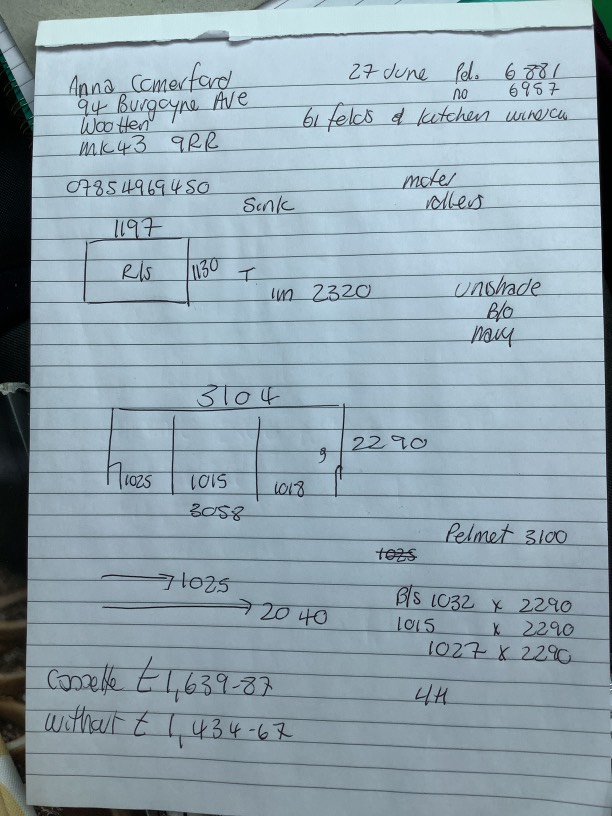 Anna Comerford
94 Burgoyne Ave
Wootten
MK43 9RR
07854969450
27 June Pel. 6881
no 6957
61 felds & kitchen
Sink
moter
rollers
1197
R/s
1130
T
im 2320
Unshade
B/o
navy
3104
2290
1025
1015
1018
3058
Pelmet 3100
1025
1025
2040
B/s 1032 x 2290
1015 x 2290
1027 x 2290
cassette £1,639-87
without £1,434-67
4H